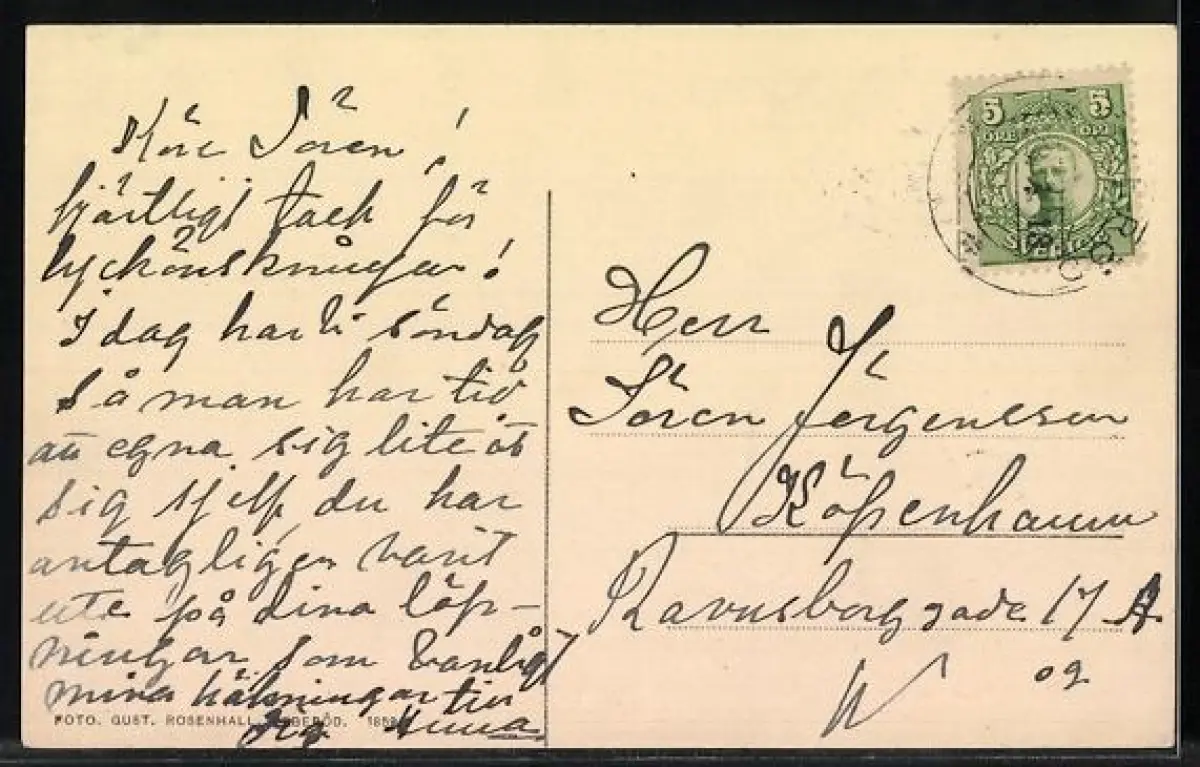 Käre Sören!
hjärtligt tack för
lyckönskningar!
I dag har vi söndag
så man har tid
att egna sig lite åt
sig sjelf, du har
antagligen varit
ute på dina löp-
ningar som vanligt
mina hälsningar till
Dig Anna
FOTO. GUST. ROSENHALL
5 5
ÖRE ÖRE
Herr
Sören Jörgensen
Köpenhamn
Ravnsborggade 17 A